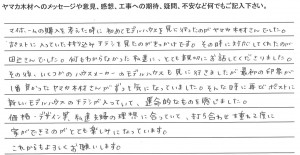 ヤマカ木材へのメッセージや意見、感想、工事への期待、疑問、不安など何でもご記入下さい。
マイホームの購入を考えた時に初めてモデルハウスを見に行ったのがヤマカ木材さんでした。
ポストに入っていた
チラシを見たのがきっかけです。その時に対応してくれたのが
田辺さんでした。何もわからなかった私達に、とても親切にお話してくださりました。
その後、いくつかのハウスメーカーのモデルハウスも見に行きましたが最初の印象が
1番良かったヤマカ木材さんがずっと気になっていました。そんな時に再びポストに
新しいモデルハウスのチラシが入っていて、運命的なものを感じました。
価格・デザイン等、私達夫婦の理想に合っていて、打ち合わせを重ねる度に
家ができるのがとても楽しみになっています。
これからもよろしくお願いします。